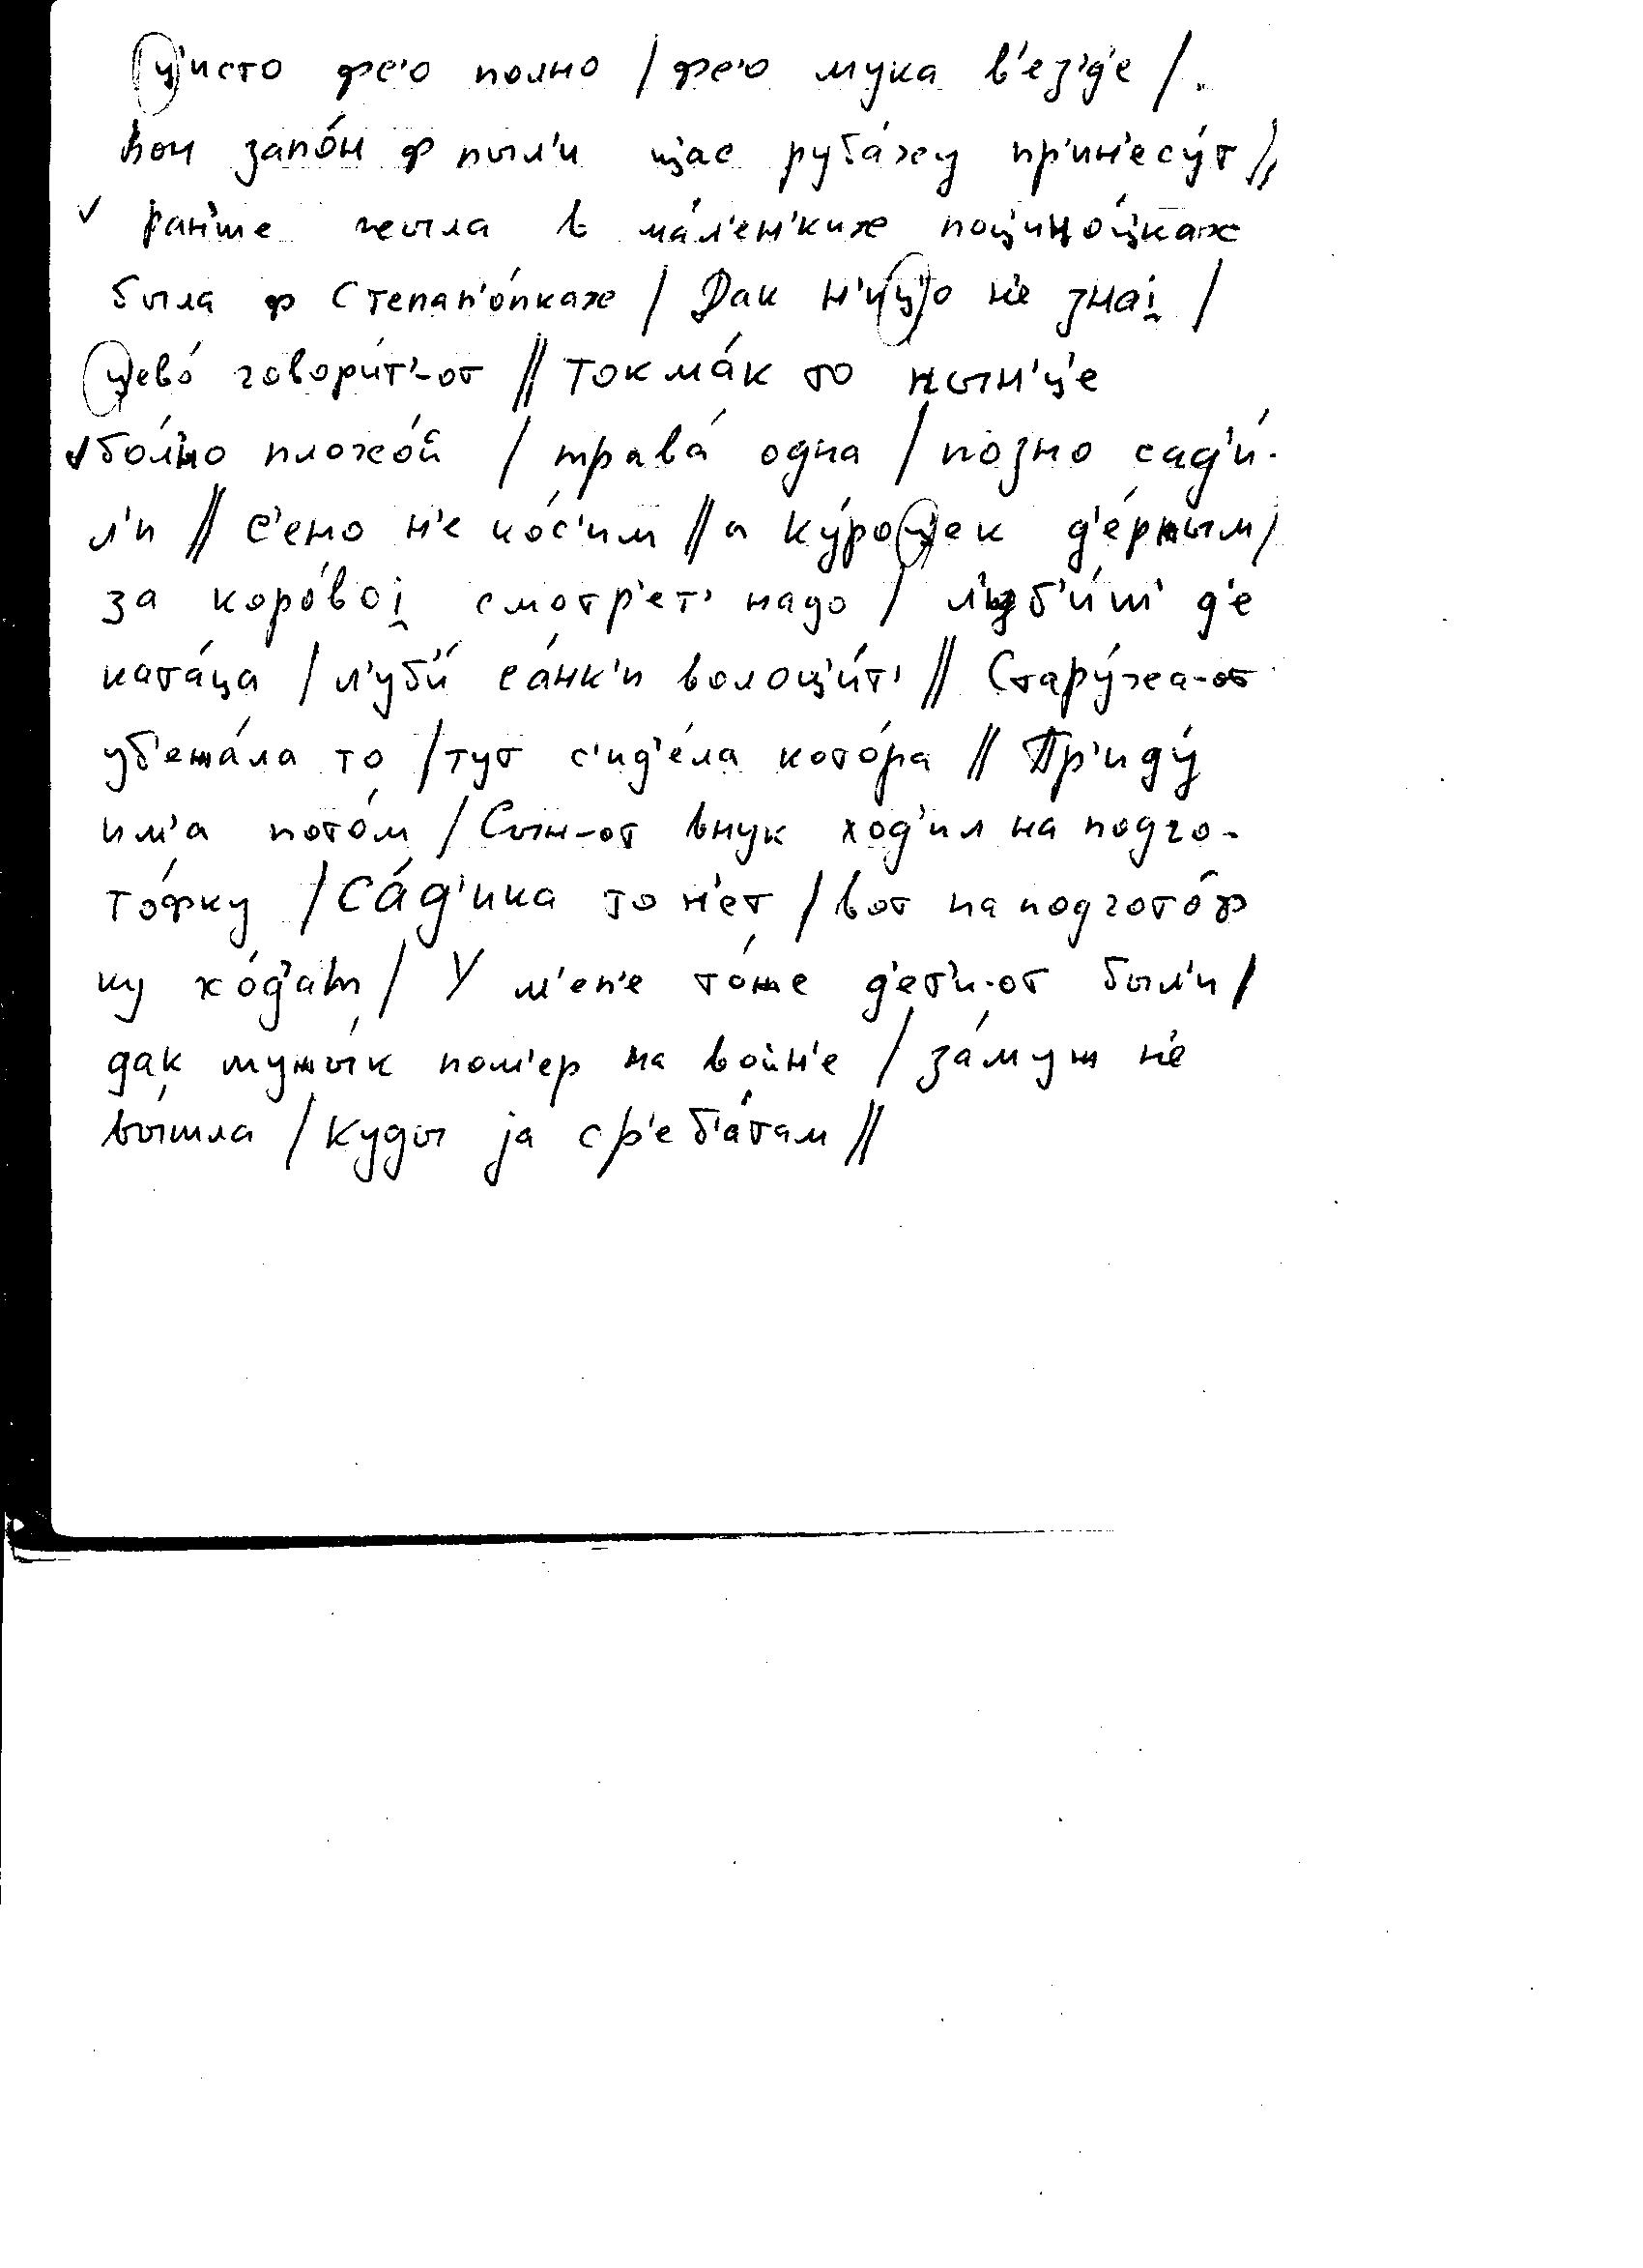 ц'исто фс'о полно / фс'о мука в'ез'д'е /.
вон запо́н ф пыл'и щ'ас руба́ху пр'ин'есу́т //
ран'ше жыла в ма́л'ен'ких поц'ино́ц'ках
была ф Степан'о́нках / Дак н'иц'о н'е знаi̯ /
ц'ево́ говори́т'-от // Токма́к то нын'ц'е
бо́л'но плохо́й / трава́ одна / позно сад'и́-
л'и // с'ено н'е ко́с'им // а ку́роц'ек д'е́ржым /
за коро́воi̯ смотр'ет' надо / л'уб'и́ш' д'е
ката́ца / л'уб'и́ са́нк'и волоц'и́т' // Стару́ха-от
уб'ежа́ла то / тут с'ид'е́ла кото́ра // Пр'иду́
им'а пото́м / Сын-от внук ход'ил на подго-
то́фку / Са́д'ика то н'ет / вот на подгото́ф
ку хо́д'ат / У м'ен'е то́же д'ет'и-от был'и /
дак мужы́к пом'ер на войн'е / за́муж н'е
вы́шла / куды jа с р'еб'а́там //